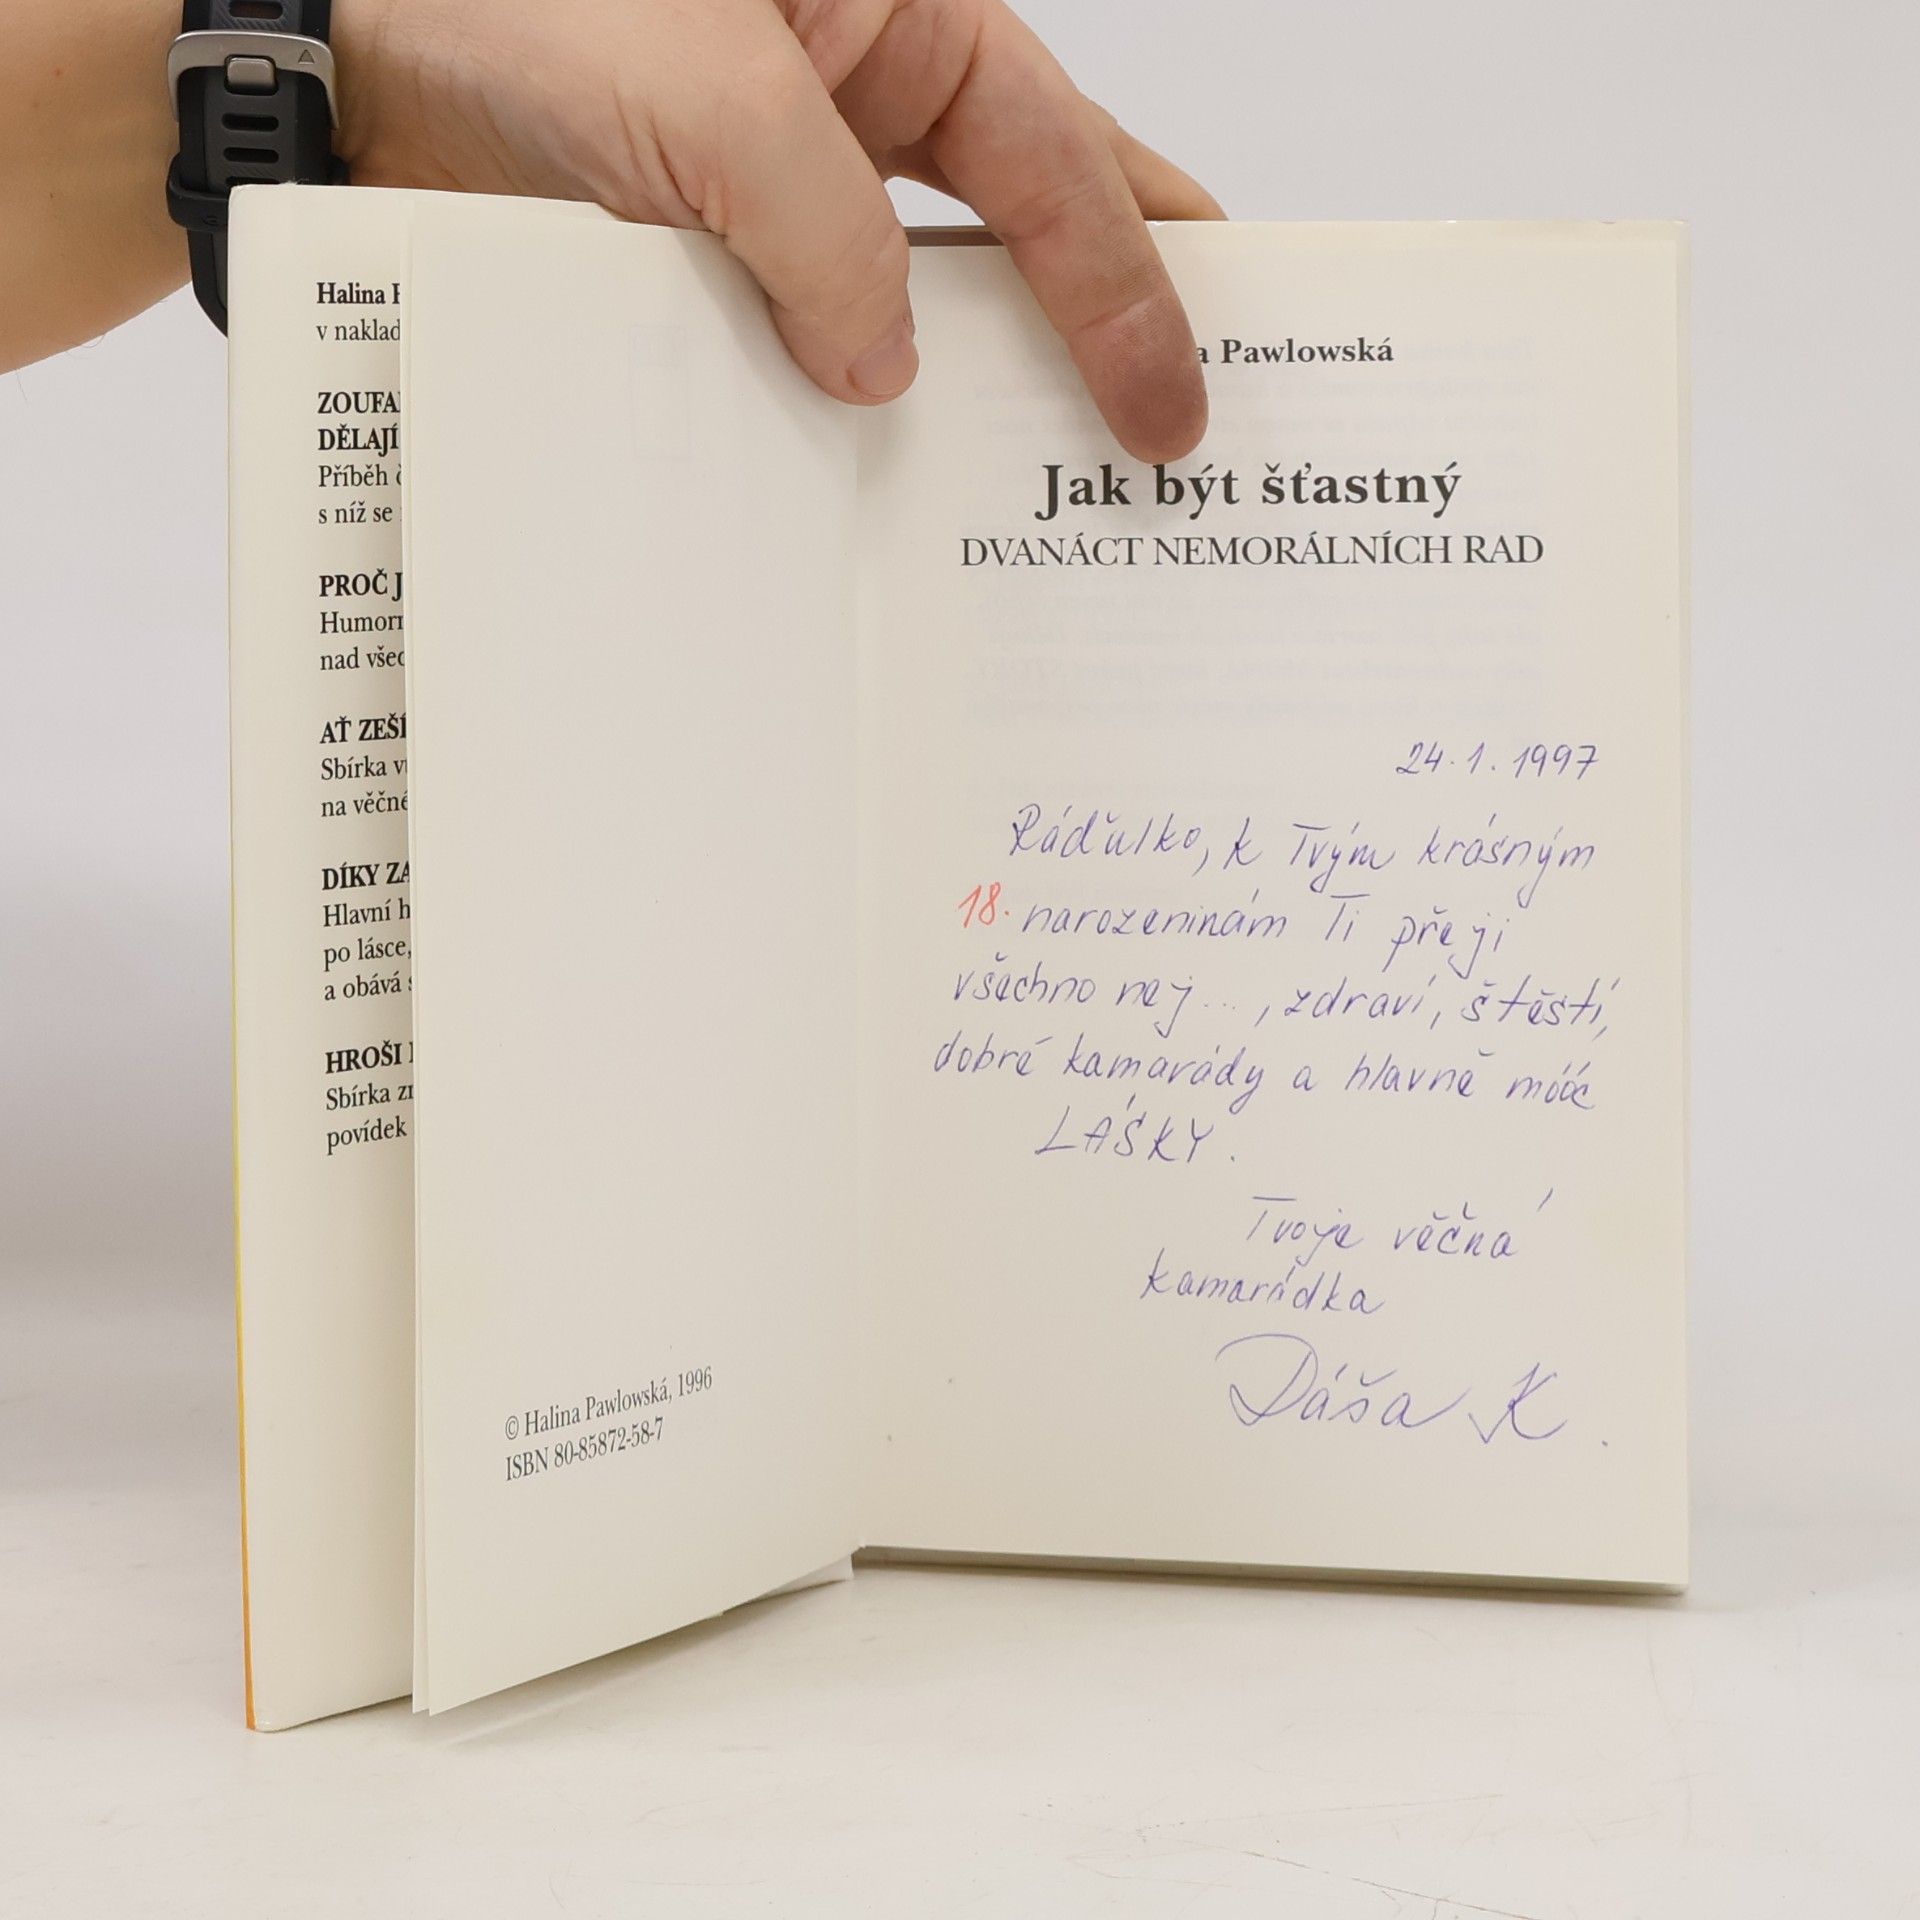 Halina
v naklad
ZOUFA
DĚLAJÍ
Příběh
s níž se
PROČ J
Humorn
nad všec
AŤ ZEŠÍ
Sbírka
na věčné
DÍKY ZA
Hlavní h
po lásce,
a obává
HROŠI
Sbírka
povídek
© Halina Pawlowská, 1996
ISBN 80-85872-58-7
a Pawlowská
Jak být šťastný
DVANÁCT NEMORÁLNÍCH RAD
24. 1. 1997
Ráďulko, k Tvým krásným
18. narozeninám Ti přeji
všechno nej..., zdraví, štěstí,
dobré kamarády a hlavně móóc
LÁSKY.
Tvoje věčná
kamarádka
Dáša K.